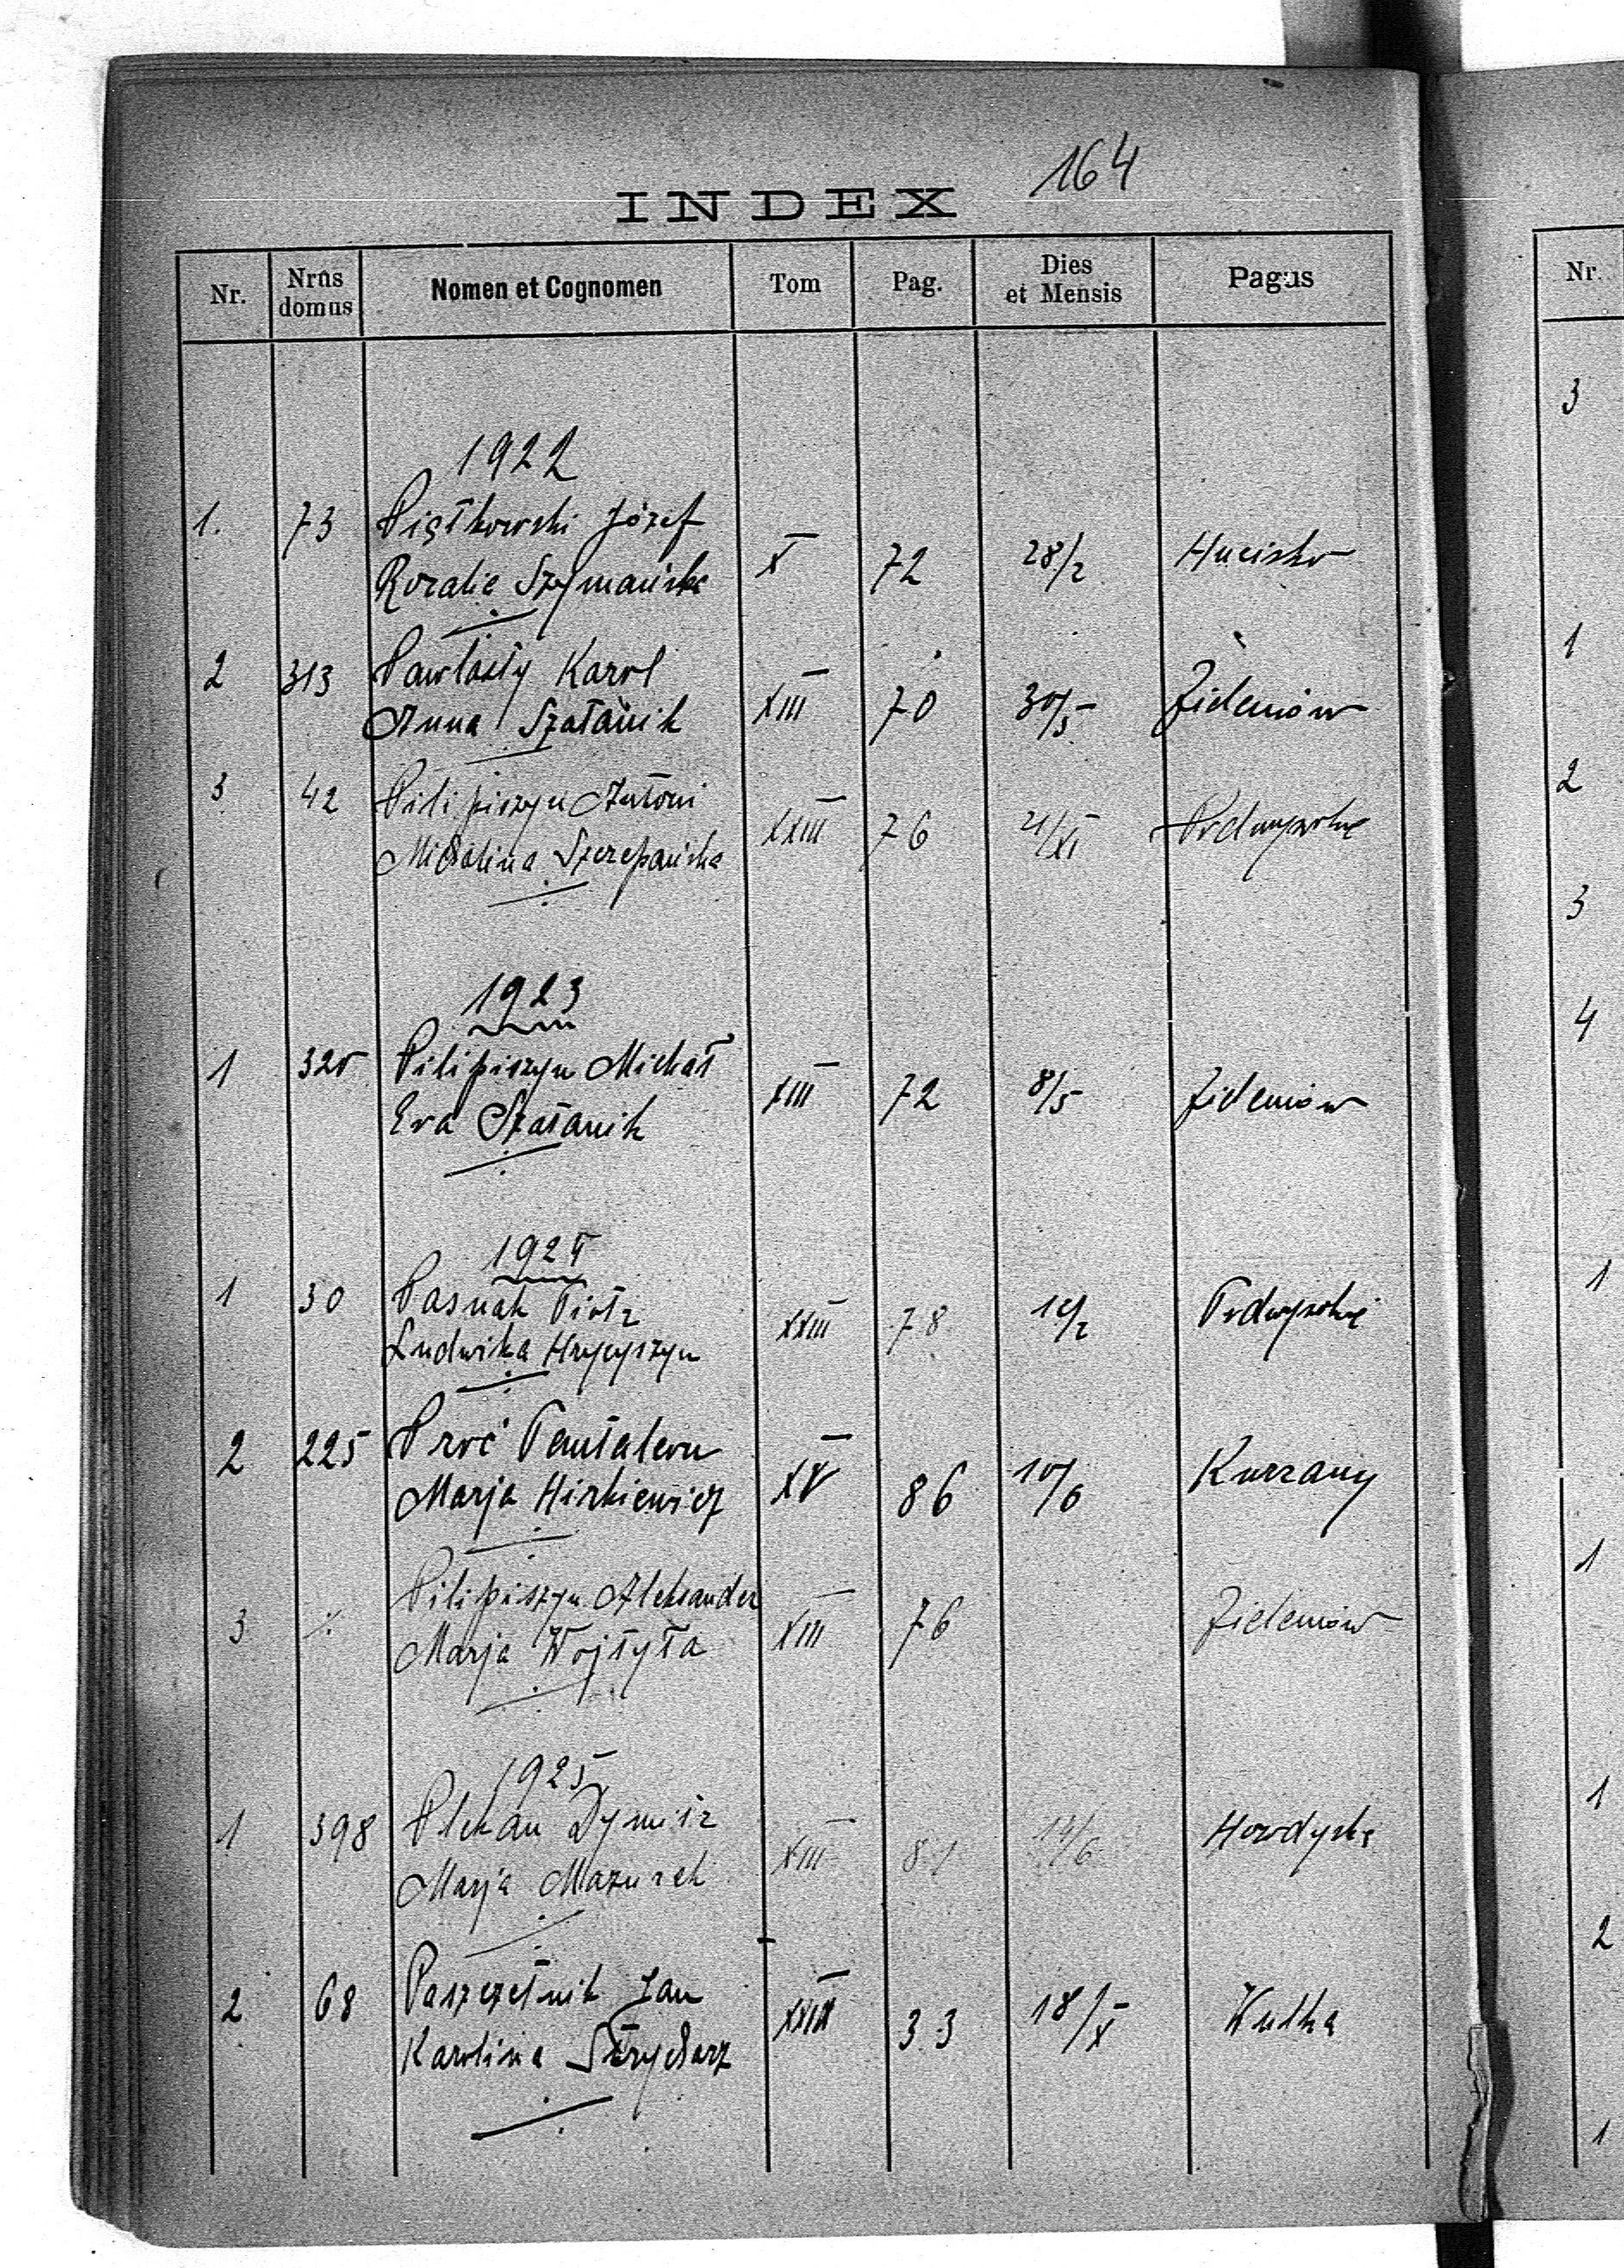 164
INDEX
Nr. Nrus domus Nomen et Cognomen Tom Pag. Dies et Mensis Pagus
1922
1. 73 Piątkowski Józef
Rozalie Szymańska X 72 28/2 Hucisko
2 313 Pawłosty Karol
Anna Szatanik XIII 70 30/5 Zieleniów
3 42 Pilipiszyn Antoni
Michalina Szczepańska XXIII 76 21/XI Podwysokie
1923
1 325 Pilipiszyn Michał
Eva Szatanik XIII 72 8/5 Zieleniów
1924
1 30 Pasnak Piotr
Ludwika Hrycyszyn XXIII 78 /2 Podwysokie
2 225 Proć Pantaleon
Marja Hirkiewicz XV 86 10/6 Kurzany
3 ./. Pilipiszyn Aleksander
Marja Wojtyła XIII 76 Zieleniów
1925
1 398 Plekan Dymitr
Marja Mazurek XIII 81 14/6 Horodyska
2 68 Paszczetnik Jan
Karolina Strycharz 33 18/X Wulka
Nr.
3
1
2
3
4
1
1
1
2
1